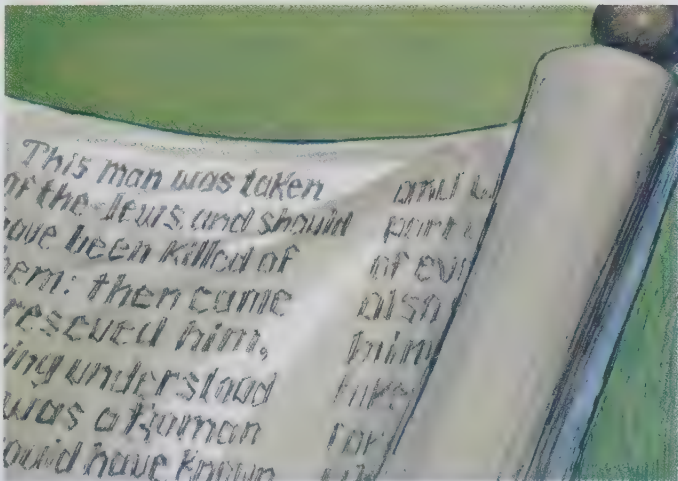 This man was taken
of the Jews and should
have been killed of
hem: then came
rescued him,
ing understood
was a Roman
ould have known
and
part
of ev
also
him
take